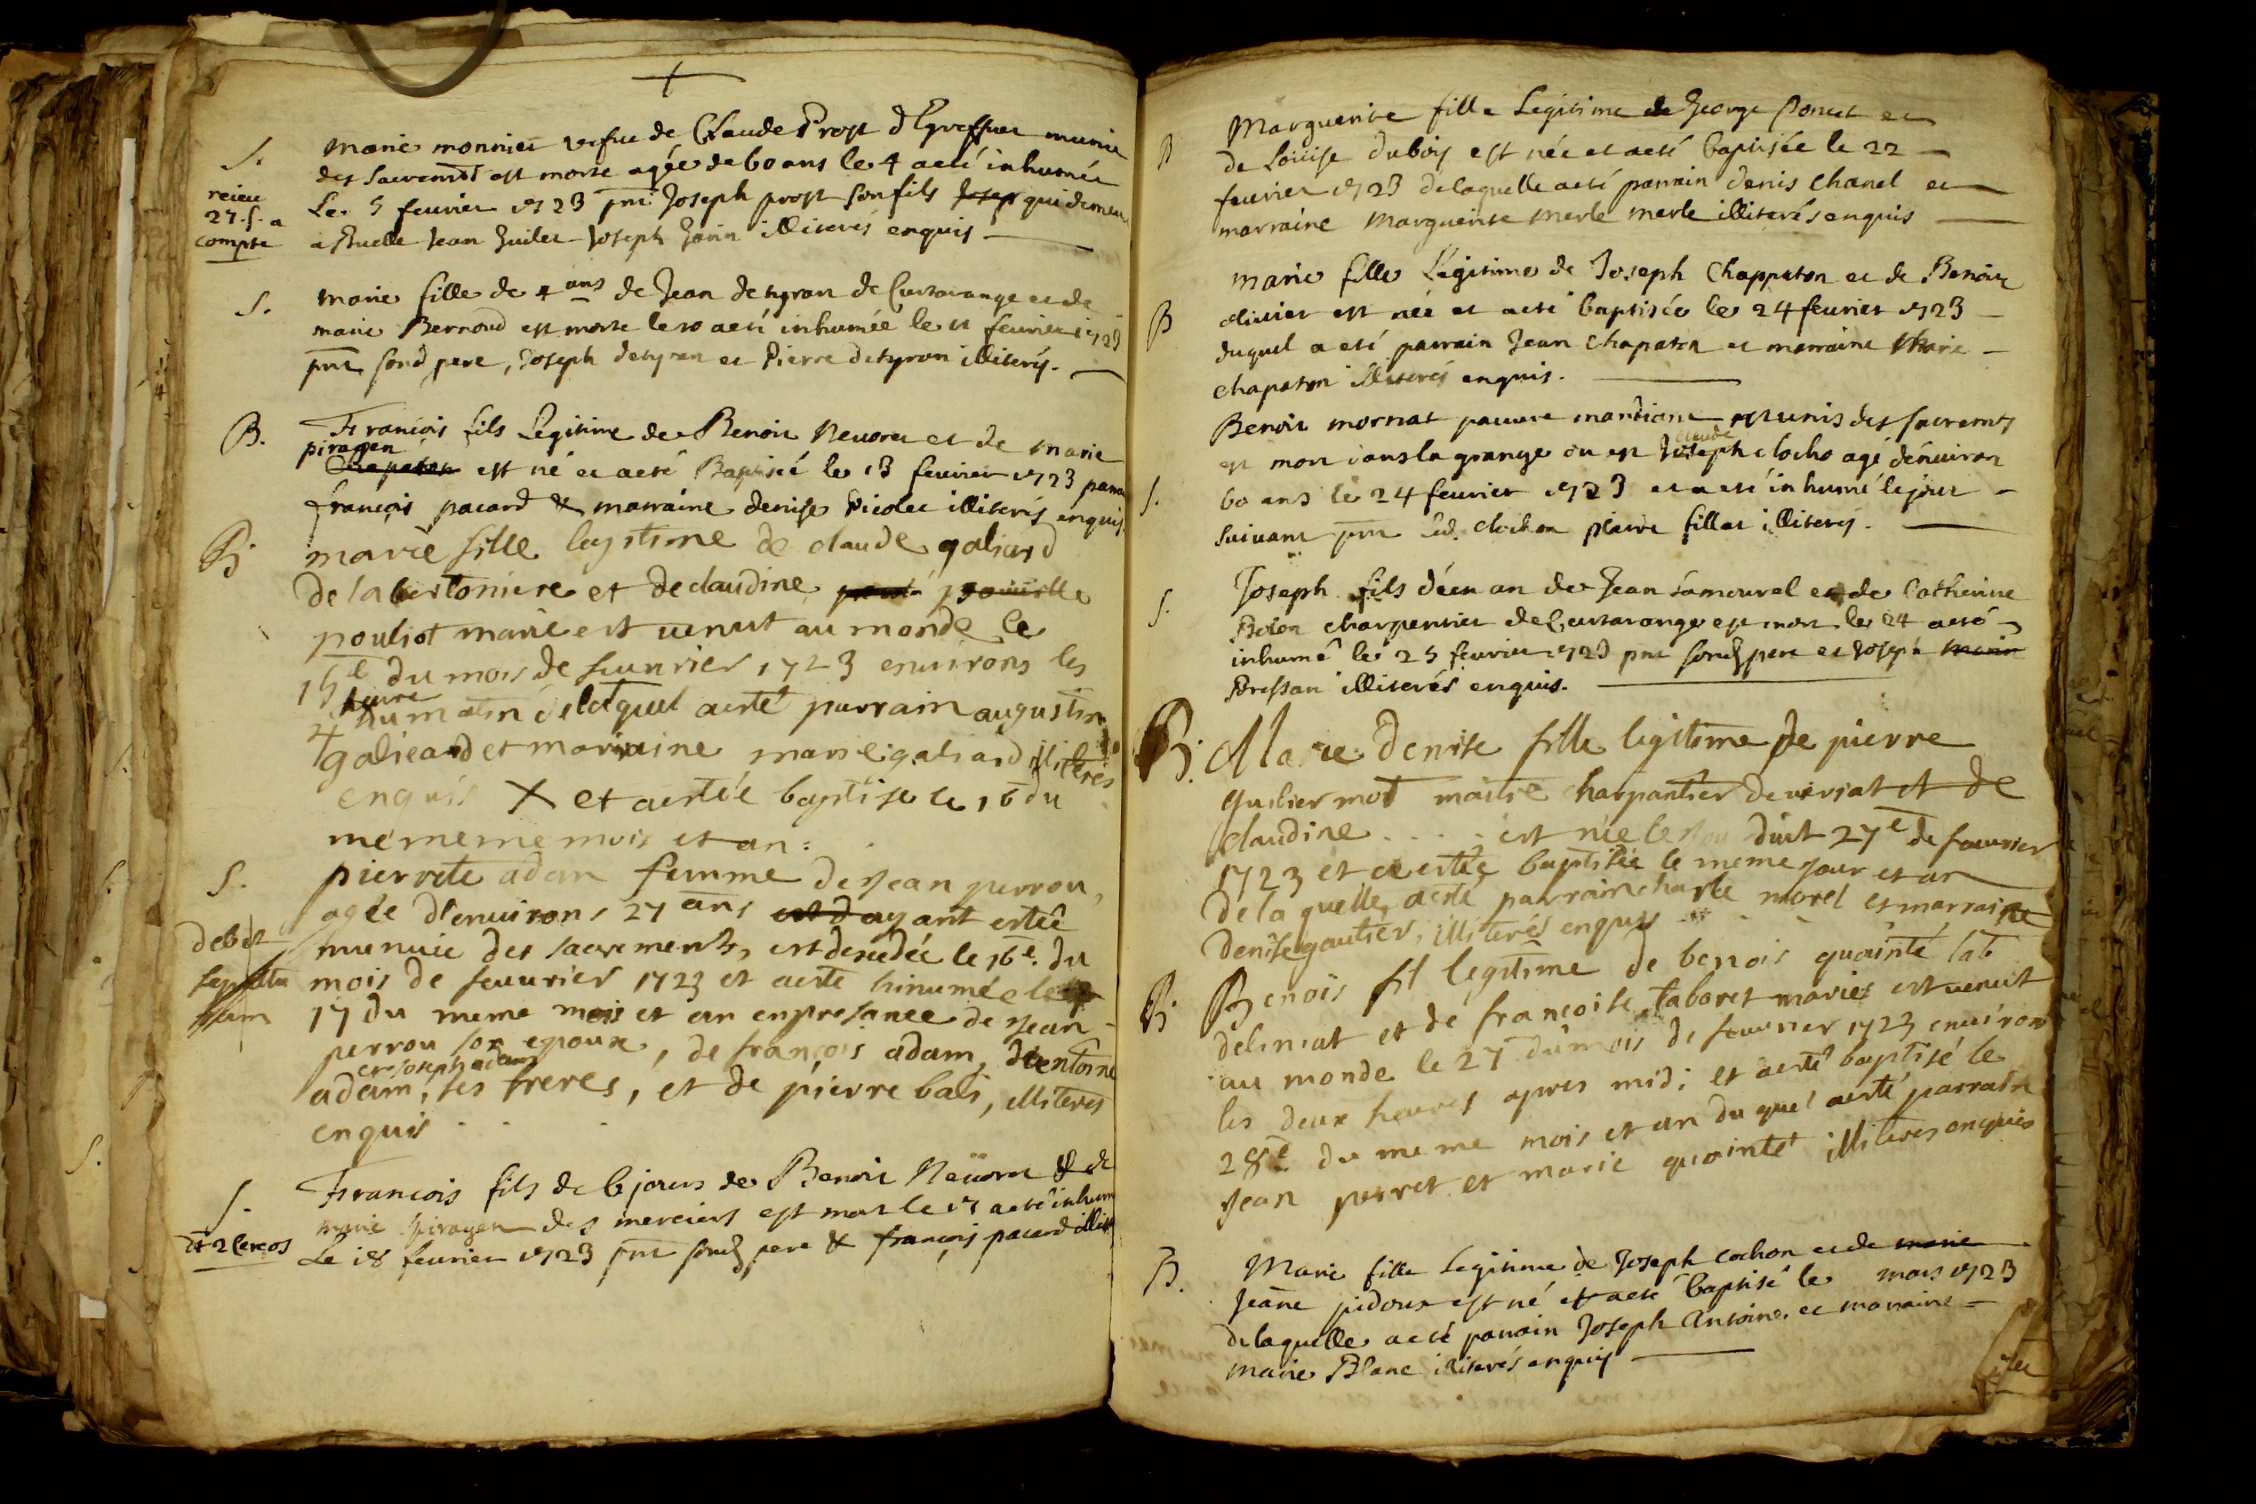 S.
Marie monnier vefue de Claude Prost munie
des sacremts est morte agée de 60 ans le 4 a eté inhumée
reieu
27. s. a
compte
Le 5 feurier 1723 pnt Joseph prost son fils Josep qui demeu
a Ruelle Jean Joseph illiterés enquis
S.
Marie fille de 4 ans de Jean detyran de Curtarange et de
marie Bernoud est morte le 10 a eté inhumée le 11 feurier 1723
pnt sond pere, Joseph detyran et Pierre detyran illiterés.
B.
Francois fils Legitime de Benoit Neuoret et de Marie
piragen
Chapaton est né et a eté Baptisé le 13 feurier 1723 parra
françois pacard & marraine denise Picolet illiterés enquis
B
marie fille legitime de claude galiard
de la bertoniere et de claudine
pouliot marie est venut au monde le
15e du mois de feuurier 1723 enuirons les
4 heure du matin de laquel a esté parrain augustin
galieard et marraine marie galiard illiterés
enquis X et a estée baptise le 16 du
mememe mois et an:
S.
pierrete adam femme de Jean perrou,
agée d'enuirons 27 ans est d ayant estée
debet
sepultu
ram
munuie des sacrements, est decedée le 16e. du
mois de feuurier 1723 et a esté hinumée le
17 du meme mois et an en presance de Jean
perrou son epoux, de françois adam, d'entoine
et Joseph adam
adam, ses freres, et de pierre bali, illiteres
enquis . . .
S.
Francois fils de 6 jours de Benoit Neuoret & de
marie piragen des merciers est mort le 17 a eté inhum
dt 2 Cereos
Le 18 feurier 1723 pnt sond pere & françois pacard illit
B
Marguerite fille Legitime de George Poncet et
de Louise dubois est née et a eté baptisée le 22
feurier 1723 de laquelle a eté parrain denis Chanel et
marraine Marguerite Merle Merle illiterés enquis
B
Marie fille Legitime de Joseph Chappaton et de Benoite
oliuier est née et a eté baptisée le 24 feurier 1723
duquel a eté parrain Jean Chapaton et marraine Marie
chapaton illiterés enquis.
S.
Benoit mornat pauure mandiant munis des sacremts
est mort dans la grange ou est Joseph claude clocho agé d'enuiron
60 ans le 24 feurier 1723 et a eté inhumé le jour
suiuant pnt clochon pierre fillat illiterés.
S.
Joseph fils d'eun an de Jean Lamourel et de Catherine
Bolon charpentier de Curtarange est mort le 24 a eté
inhumé le 25 feurier 1723 pnt sond pere et Joseph
Bressan illiterés enquis.
B.
Marie denise fille legitime de pierre
guiliermot maitre charpantier de veriat et de
claudine . . . . est née le dict 27e de feuurier
1723 et a estée baptisée le meme jour et an
de la quelle a esté parrain charle morel et marraine
denise gautier, illiterés enquis
B
Benois fil legitime de benois quointé lab
delinéat et de françoise taboret mariés est venut
au monde le 27 du mois de feuurier 1723 enuiron
les deux heures apres midi et a esté baptisé le
28e du meme mois et an du quel a esté parrain
Jean perret et marie quointet illiteres enquis
B.
Marie fille Legitime de Joseph cochon et de marie
Jeane pidoux est né et a eté baptisé le mars 1723
de laquelle a eté parrain Joseph Antoine. et marraine
Marie Blanc illiterés enquis